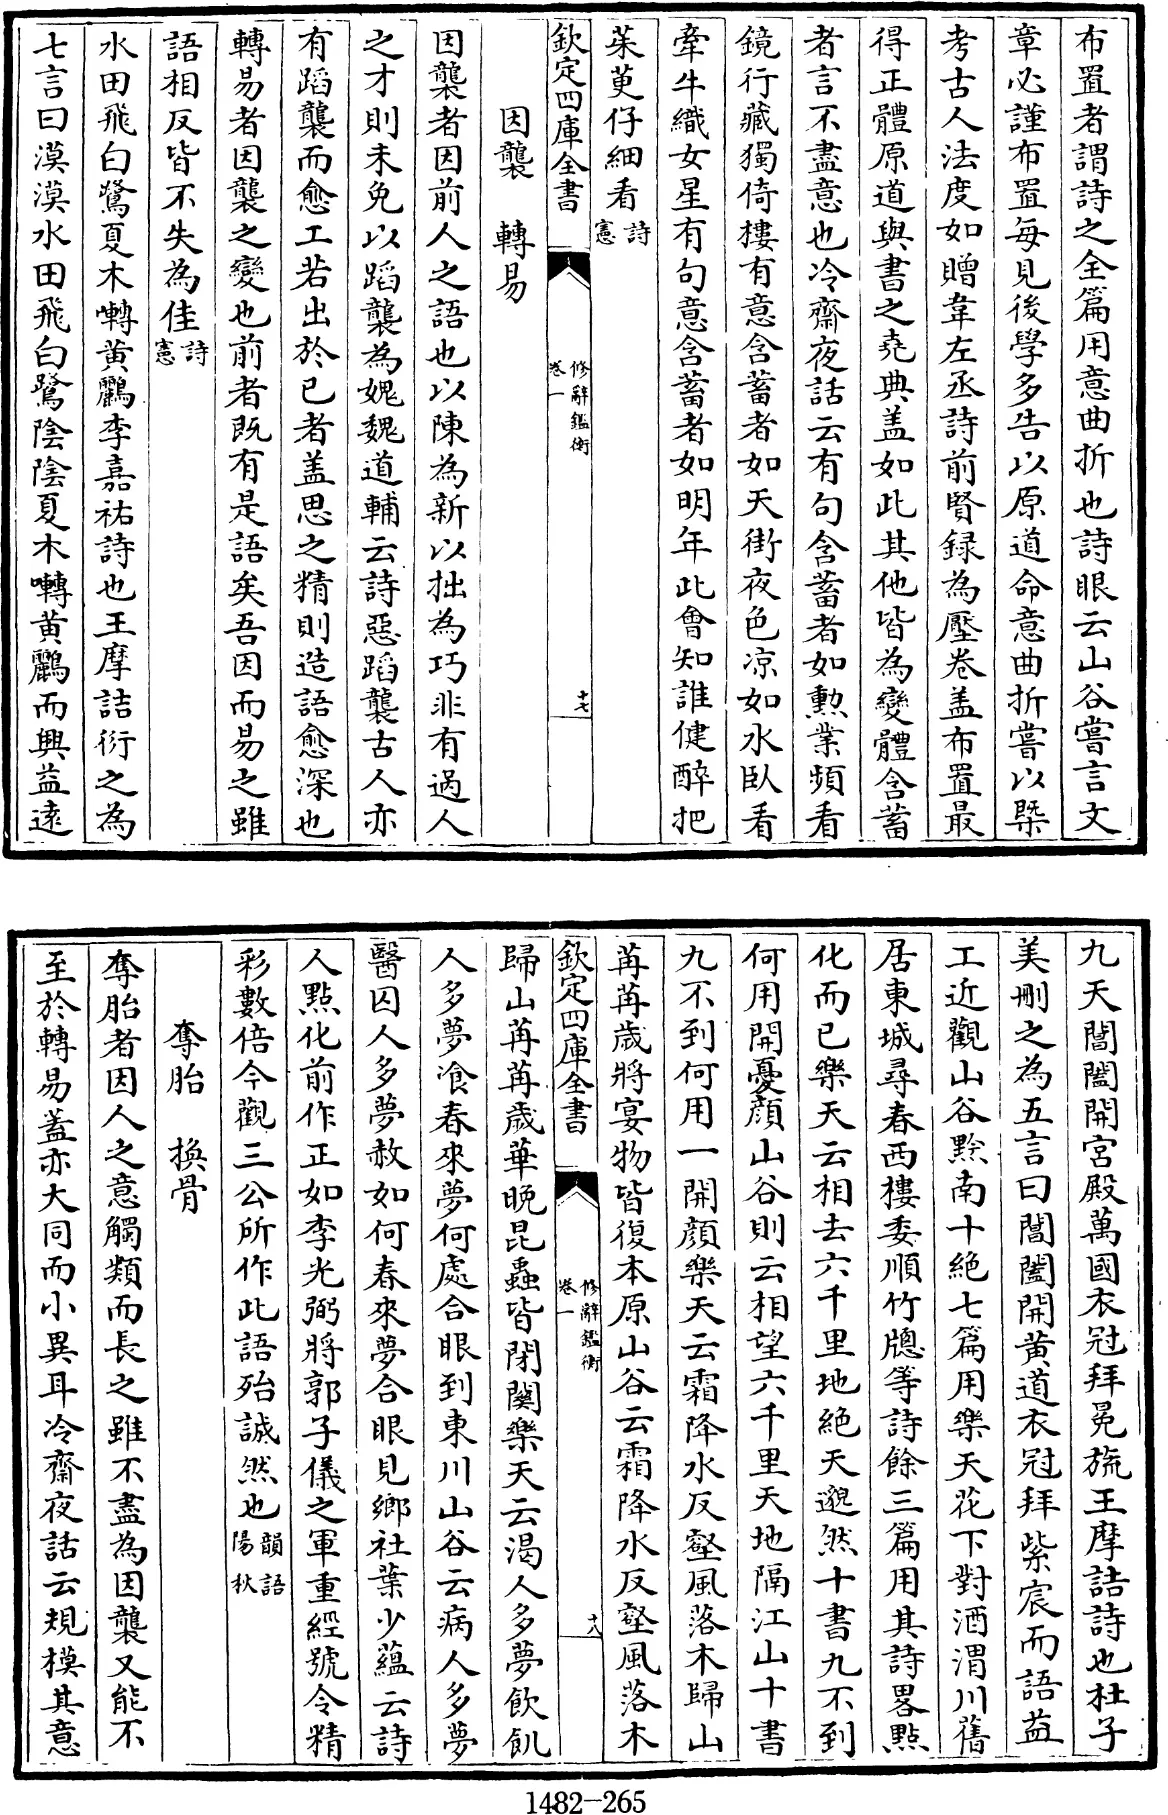 布置者謂詩之全篇用意曲折也詩眼云山谷嘗言文
章必謹布置每見後學多告以原道命意曲折嘗以槩
考古人法度如贈韋左丞詩前賢録為壓卷盖布置最
得正體原道與書之堯典盖如此其他皆為變體含蓄
者言不盡意也冷齋夜話云有句含蓄者如勲業頻看
鏡行藏獨倚樓有意含蓄者如天街夜色凉如水卧看
牽牛織女星有句意含蓄者如明年此會知誰健醉把
茱萸仔細看詩憲
欽定四庫全書
修辭鑑衡
卷一
十七
因襲 轉易
因襲者因前人之語也以陳為新以拙為巧非有過人
之才則未免以蹈襲為媿魏道輔云詩惡蹈襲古人亦
有蹈襲而愈工若出於已者盖思之精則造語愈深也
轉易者因襲之變也前者既有是語矣吾因而易之雖
語相反皆不失為佳詩憲
水田飛白鷺夏木囀黄鸝李嘉祐詩也王摩詰衍之為
七言曰漠漠水田飛白鷺陰陰夏木囀黄鸝而興益逺
九天閶闔開宮殿萬國衣冠拜冕旒王摩詰詩也杜子
美刪之為五言曰閶闔開黄道衣冠拜紫宸而語益
工近觀山谷黔南十絶七篇用樂天花下對酒渭川舊
居東城尋春西樓委順竹牕等詩餘三篇用其詩畧點
化而已樂天云相去六千里地絶天邈然十書九不到
何用開憂顔山谷則云相望六千里天地隔江山十書
九不到何用一開顔樂天云霜降水反壑風落木歸山
苒苒歳將宴物皆復本原山谷云霜降水反壑風落木
欽定四庫全書
修辭鑑衡
卷一
十八
歸山苒苒歳華晩昆蟲皆閉闗樂天云渴人多夢飲飢
人多夢飡春來夢何處合眼到東川山谷云病人多夢
醫囚人多夢赦如何春來夢合眼見鄉社葉少蘊云詩
人點化前作正如李光弼將郭子儀之軍重經號令精
彩數倍今觀三公所作此語殆誠然也韻語陽秋
奪胎 換骨
奪胎者因人之意觸類而長之雖不盡為因襲又能不
至於轉易盖亦大同而小異耳冷齋夜話云規模其意
1482-265